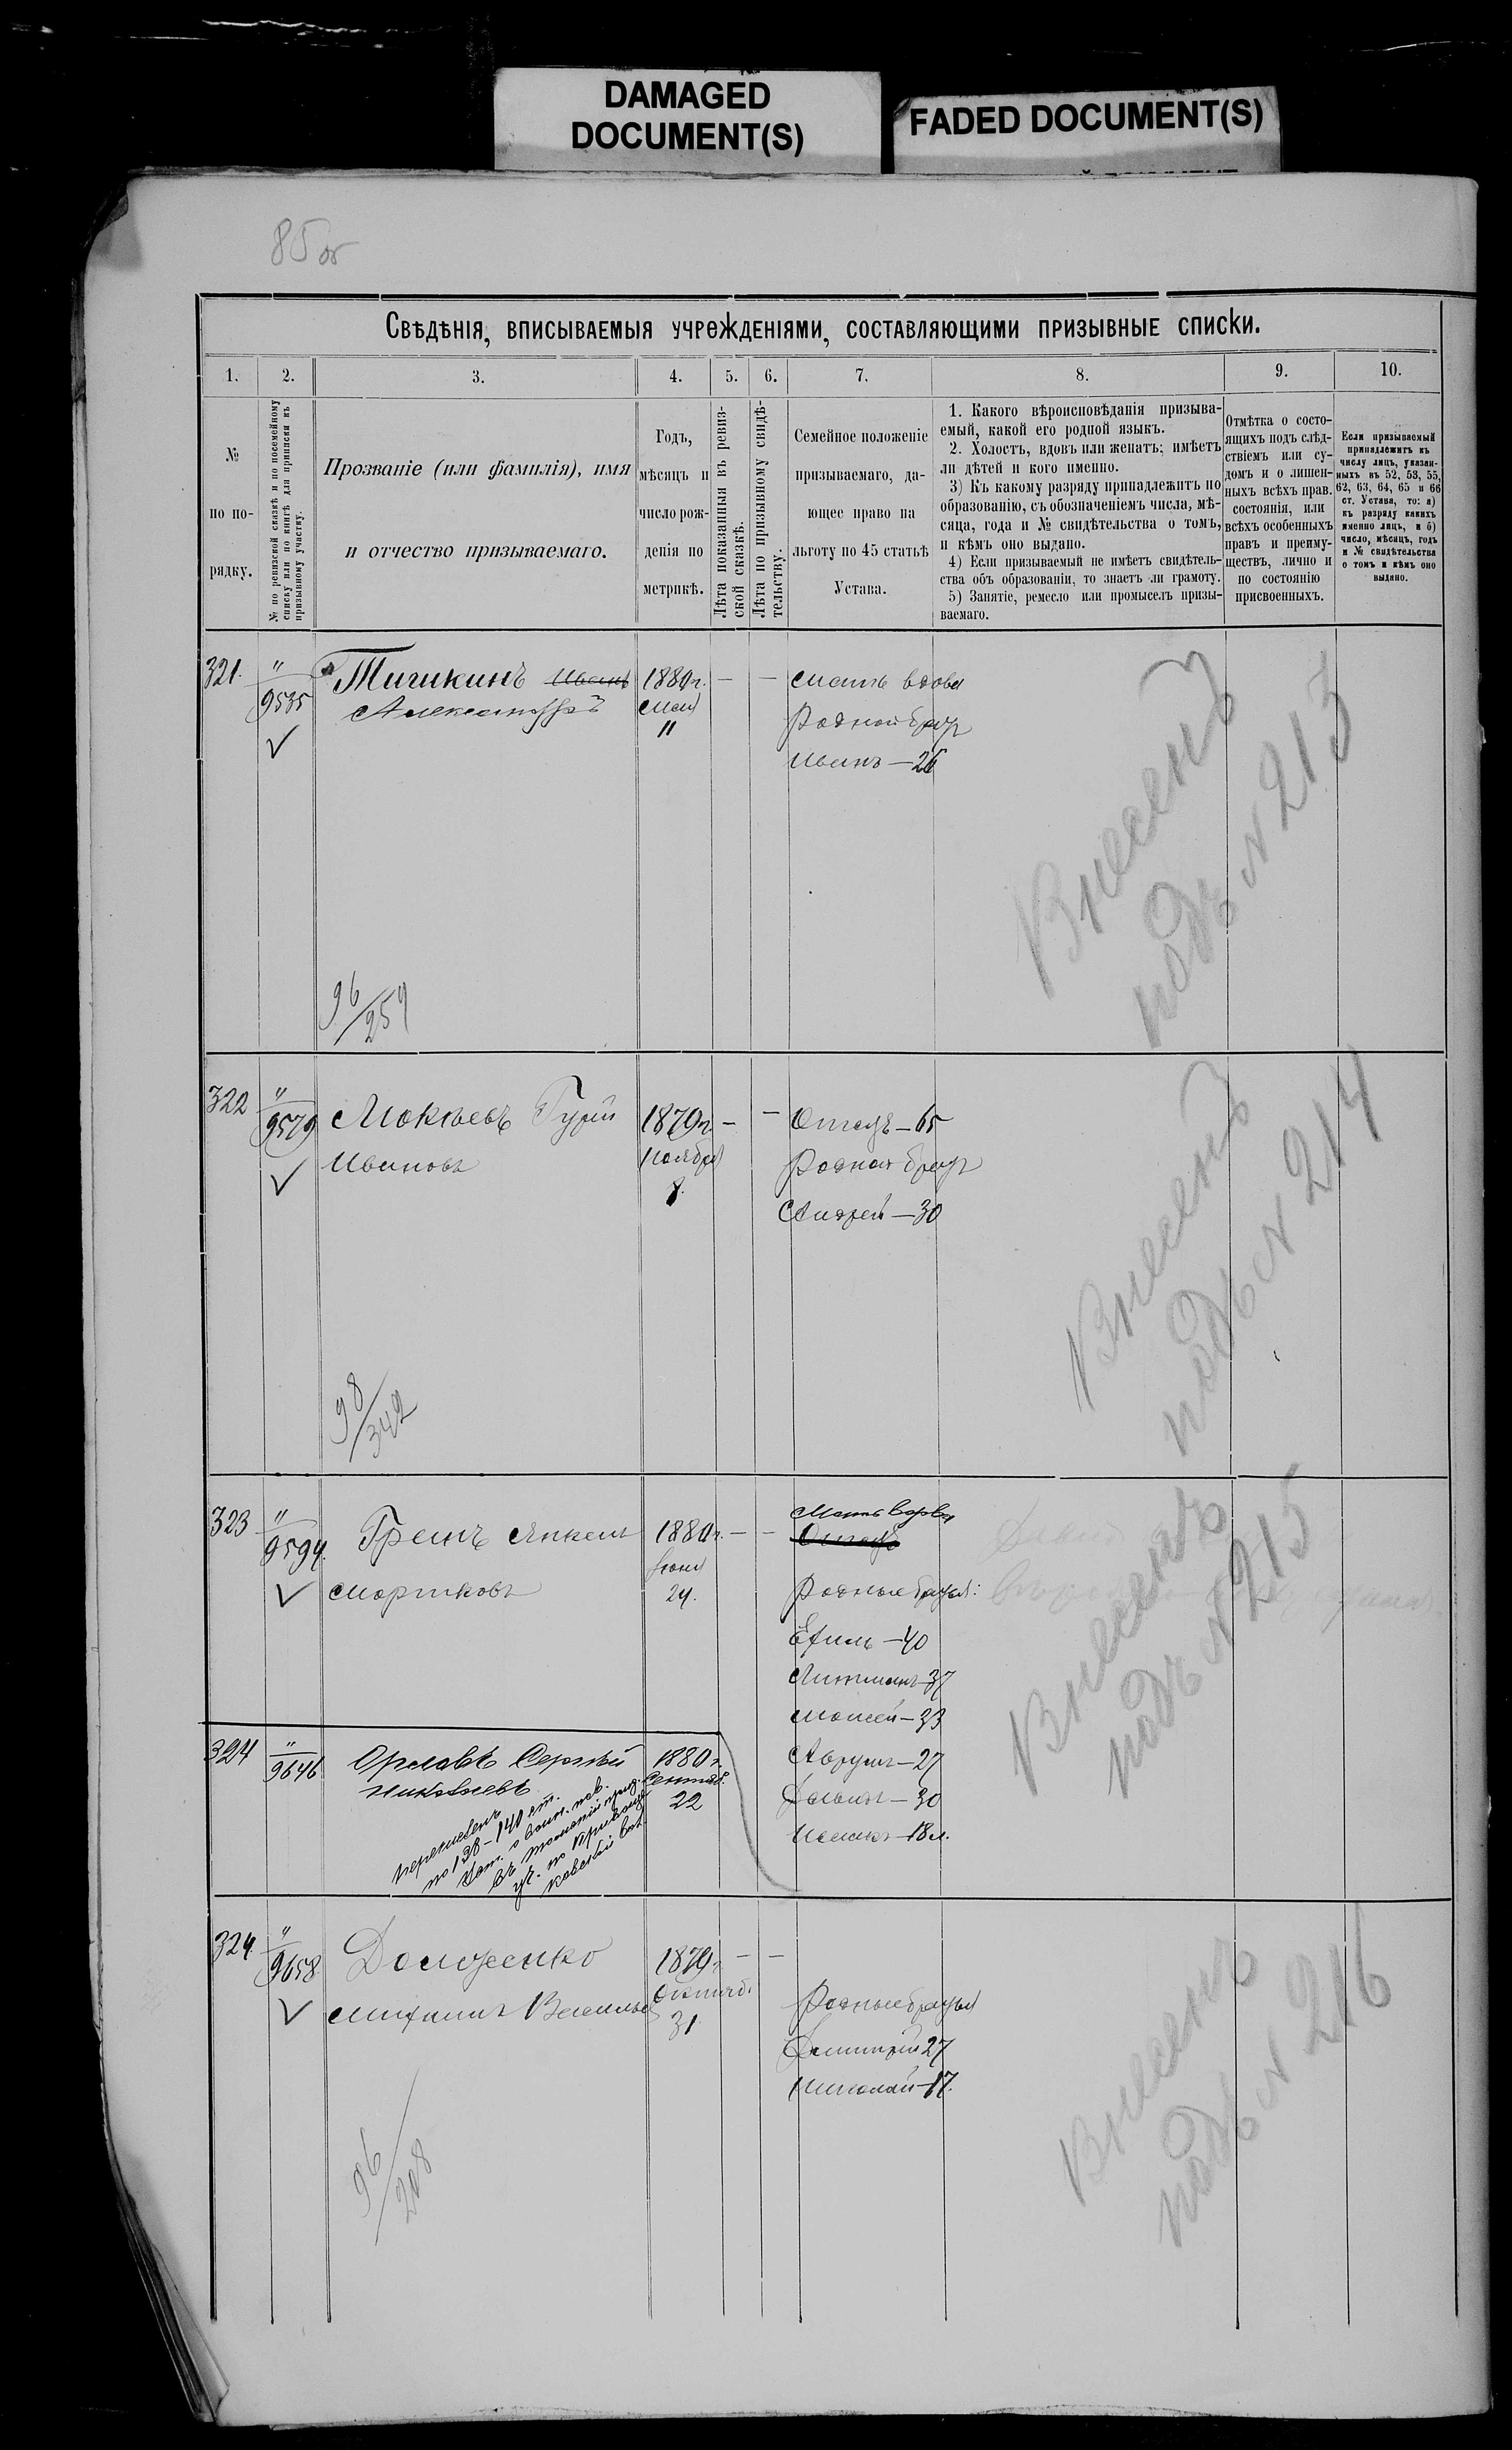 DAMAGED
DOCUMENT(S)
FADED DOCUMENT(S)
85 об
Свѣдѣнія, вписываемыя учрежденіями, составляющими призывные списки.
1. 2. 3. 4. 5. 6. 7. 8. 9. 10.
№
по по-
рядку.
№ по ревизской сказкѣ и по посемейному
списку или по книгѣ для приписки къ
призывному участку.
Прозваніе (или фамилія), имя
и отчество призываемаго.
Годъ,
мѣсяцъ и
число рож-
денія по
метрикѣ.
Лѣта показанныя въ ревиз-
ской сказкѣ.
Лѣта по призывному свидѣ-
тельству.
Семейное положеніе
призываемаго, да-
ющее право на
льготу по 45 статьѣ
Устава.
1. Какого вѣроисповѣданія призыва-
емый, какой его родной языкъ.
2. Холостъ, вдовъ или женатъ; имѣетъ
ли дѣтей и кого именно.
3) Къ какому разряду принадлежитъ по
образованію, съ обозначеніемъ числа, мѣ-
сяца, года и № свидѣтельства о томъ,
и кѣмъ оно выдано.
4) Если призываемый не имѣетъ свидѣтель-
ства объ образованіи, то знаетъ ли грамоту.
5) Занятіе, ремесло или промыселъ призы-
ваемаго.
Отмѣтка о состо-
ящихъ подъ слѣд-
ствіемъ или су-
домъ и о лишен-
ныхъ всѣхъ прав.
состоянія, или
всѣхъ особенныхъ
правъ и преиму-
ществъ, лично и
по состоянію
присвоенныхъ.
Если призываемый
принадлежитъ къ
числу лицъ, указан-
ныхъ въ 52, 53, 55,
62, 63, 64, 65 и 66
ст. Устава, то: а)
къ разряду какихъ
именно лицъ, и б)
число, мѣсяцъ, годъ
и № свидѣтельства
о томъ и кѣмъ оно
выдано.
321. " Тичикинъ Иванъ 1880 г. — — Мать вдова
9535 Александръ Мая Родной братъ
✓ 11 Иванъ — 26
Внесенъ
подъ № 213
96/259
322 " Мокѣевъ Гурій 1879 г. — — Отецъ — 65
9579 Ивановъ Ноября Родной братъ
✓ 8. Андрей — 30
Внесенъ
подъ № 214
98/342
323 " Гренъ Янкель 1880 г. — — Мать вдова
9594. Отецъ
✓ Моршковъ Іюня
24. Родные братья:
Ефиль — 40
Литманъ — 37
Мошей — 33
Аврумъ — 27
Давидъ — 30
Ицикъ — 18 л.
Внесенъ
подъ № 215
324 " Орловъ Сергѣй 1880 г.
9646 Николаевъ Сентяб.
22
перечисленъ
по 138–140 ст.
Уст. о воин. пов.
въ
уч. по
324. " Долженко 1879 г. — —
9658 Михаилъ Васильев Октяб.
✓ 31. Родные братья
Димитрій 27
Николай — 17.
Внесенъ
подъ № 216
96/208